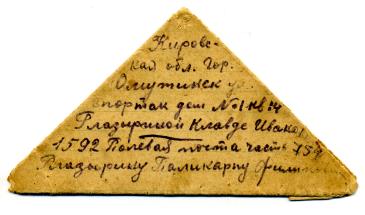 Кировс-
кая обл. Гор.
Омутнинск ул.
дом №1 кв 14
Глазыриной Клавде Ивано
1592 Полевая почта часть 754
Глазырину Паликарпу